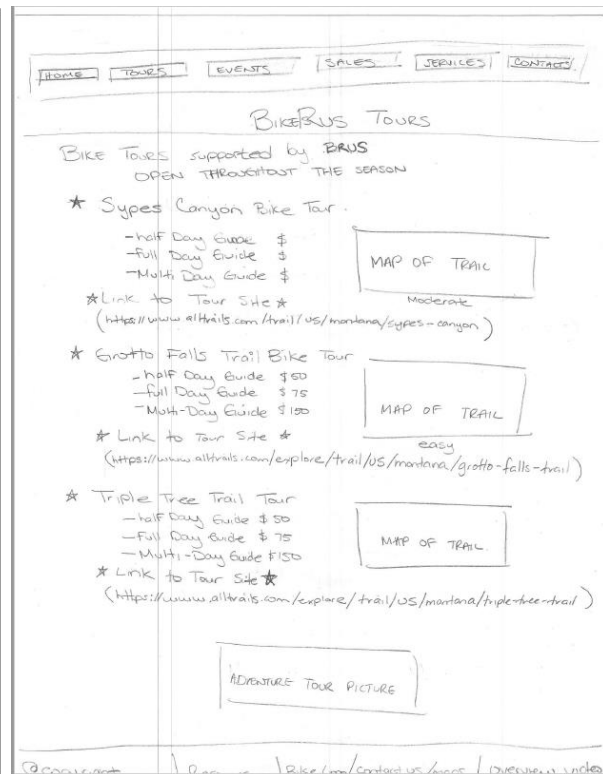 HOME TOURS EVENTS SALES SERVICES CONTACTS
BIKERUS TOURS
BIKE TOURS supported by BRUS
OPEN THROUGHOUT THE SEASON
★ Sypes Canyon Bike Tour.
- half Day Guide $
- full Day Guide $
- Multi Day Guide $
MAP OF TRAIL
Moderate
★ Link to Tour Site ★
(https://www.alltrails.com/trail/us/montana/sypes-canyon)
★ Grotto Falls Trail Bike Tour
- half Day Guide $50
- full Day Guide $75
- Multi-Day Guide $150
MAP OF TRAIL
easy
★ Link to Tour Site ★
(https://www.alltrails.com/explore/trail/us/montana/grotto-falls-trail)
★ Triple Tree Trail Tour
- half Day Guide $50
- Full Day Guide $75
- Multi-Day Guide $150
MAP OF TRAIL
★ Link to Tour Site ★
(https://www.alltrails.com/explore/trail/us/montana/triple-tree-trail)
ADVENTURE TOUR PICTURE
@copyright | Bike / / contact us / maps / overview video